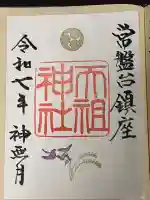 常盤台鎮座
天祖神社
令和七年 神無月